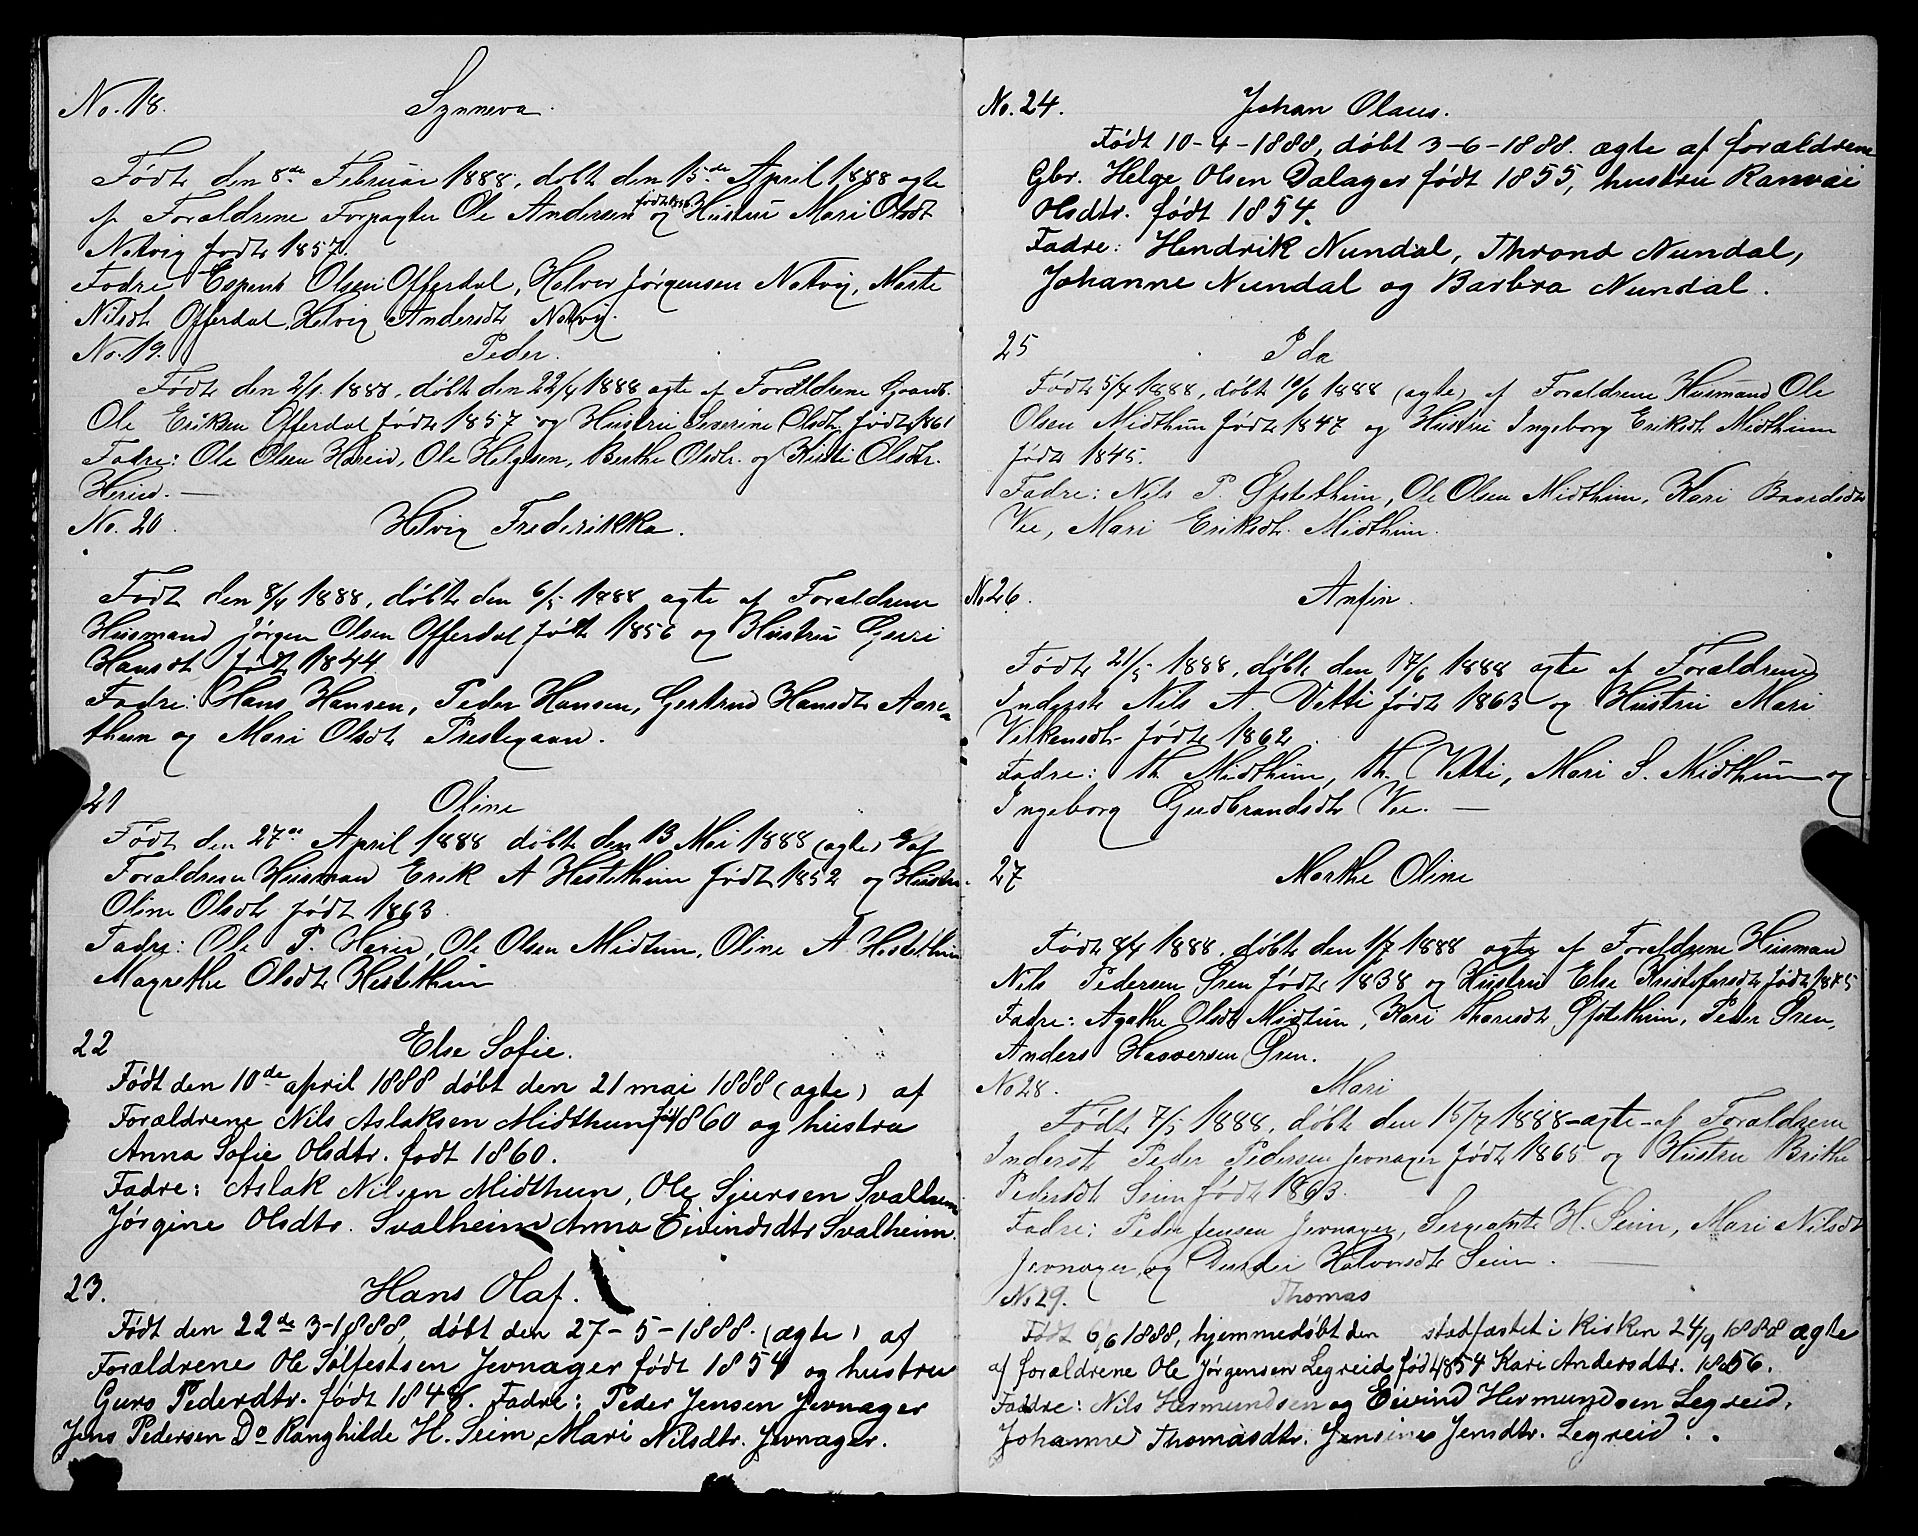 No. 18. Synneva.
Født den 8de Februar 1888, døbt den 15de April 1888 ægte
af Forældrene Forpagter Ole Andersen født og Hustru Mari Olsdt
Notvig født 1857.
Fadre Espend Olsen Offerdal, Halvor Jørgensen Notvig, Marte
Nilsdt Offerdal, Helvig Andersdt Notvig.
No. 19. Peder.
Født den 2/1 1888, døbt den 22/4 1888 ægte af Forældrene Gaardb.
Ole Eriksen Offerdal født 1857 og Hustru Severine Olsdt. født 1861
Fadre: Ole Olsen Hæreid, Ole Helgesen, Berthe Olsdtr. og Kirsti Olsdtr.
Hæreid. —
No. 20. Helvig Frederikka.
Født den 8/4 1888, døbt den 6/5 1888 ægte af Forældrene
Husmand Jørgen Olsen Offerdal født 1856 og Hustru Guri
Hansdt født 1844
Fadre: Hans Hansen, Peder Hansen, Gertrud Hansdt Aare-
thun og Mari Olsdt Prestegaan.
21 Oline
Født den 27de April 1888 døbt den 13 Mai 1888 (ægte) af
Forældrene Husman Erik A Hestethun født 1852 og Hustru
Oline Olsdt født 1863.
Fadre: Ole P. Hæreid, Ole Olsen Midtun, Oline A Hestethun
Magrethe Olsdt Hestethun
22 Else Sofie.
Født den 10de april 1888 døbt den 21 mai 1888 (ægte) af
Forældrene Nils Aslaksen Midthun født 1860 og hustru
Anna Sofie Olsdtr. født 1860.
Fadre: Aslak Nilsen Midthun, Ole Sjursen Svalheim
Jørgine Olsdtr. Svalheim Anna Eivindsdtr Svalheim.
23. Hans Olaf.
Født den 22de 3-1888, døbt den 27-5-1888. (ægte) af
Forældrene Ole Sølfestsen Jevnager født 1854 og hustru
Guro Pedersdtr. født 1848. Fadre: Peder Jensen Jevnager
Jens Pedersen Do Ranghilde H. Seim, Mari Nilsdtr. Jevnager.
No. 24. Johan Olaus.
Født 10-4-1888, døbt 3-6-1888. ægte af forældrene
Gbr. Helge Olsen Dalager født 1855, hustru Ranvei
Olsdtr. født 1854.
Fadre: Hendrik Nundal, Thrond Nundal,
Johanne Nundal og Barbra Nundal.
25 Ida
Født 5/4 1888, døbt 10/6 1888 (ægte) af Forældrene Husmand Ole
Olsen Midthun født 1847 og Hustru Ingeborg Eriksdt Midthun
født 1845.
Fadre: Nils P. Øfstethun, Ole Olsen Midthun, Kari Baardsdt
Vee, Mari Eriksdt. Midthun.
No 26. Anfin.
Født 21/5 1888, døbt den 17/6 1888 ægte af Forældrene
Inderst Nils A. Vetti født 1863 og Hustru Mari
Vilkensdt født 1862.
Fadre: Th. Midthun, Th. Vetti, Mari S. Midthun og
Ingeborg Gudbrandsdt Vee. —
27 Marthe Oline
Født 8/4 1888, døbt den 1/7 1888 ægte af Forældrene Husman
Nils Pedersen Øren født 1838 og Hustru Else Kristofersdt født 1845
Fadre: Agathe Olsdt Midtun, Kari Øfstethun, Peder Øren,
Anders Haaversen Øren.
No 28. Mari
Født 7/5 1888, døbt den 15/7 1888-ægte-af Forældrene
Inderst Peder Pedersen Jevnager født 1865 og Hustru Brithe
Pedersdt Seim født 1863.
Fadre: Peder Jensen Jevnager, Sergeante H. Seim, Mari Nilsdt
Jevnager og Halvorsdt Seim. —
No 29. Thomas
Født 6/6 1888, hjemmedøbt den stadfæstet i kirken 24/9 1888 ægte
af forældrene Ole Jørgensen Legreid født 1854 Kari Andersdtr. 1856.
Faddre: Nils Hermundsen og Eivind Hermundsen Legreid.
Johanne Thomasdtr. Jensine Jensdtr. Legreid.